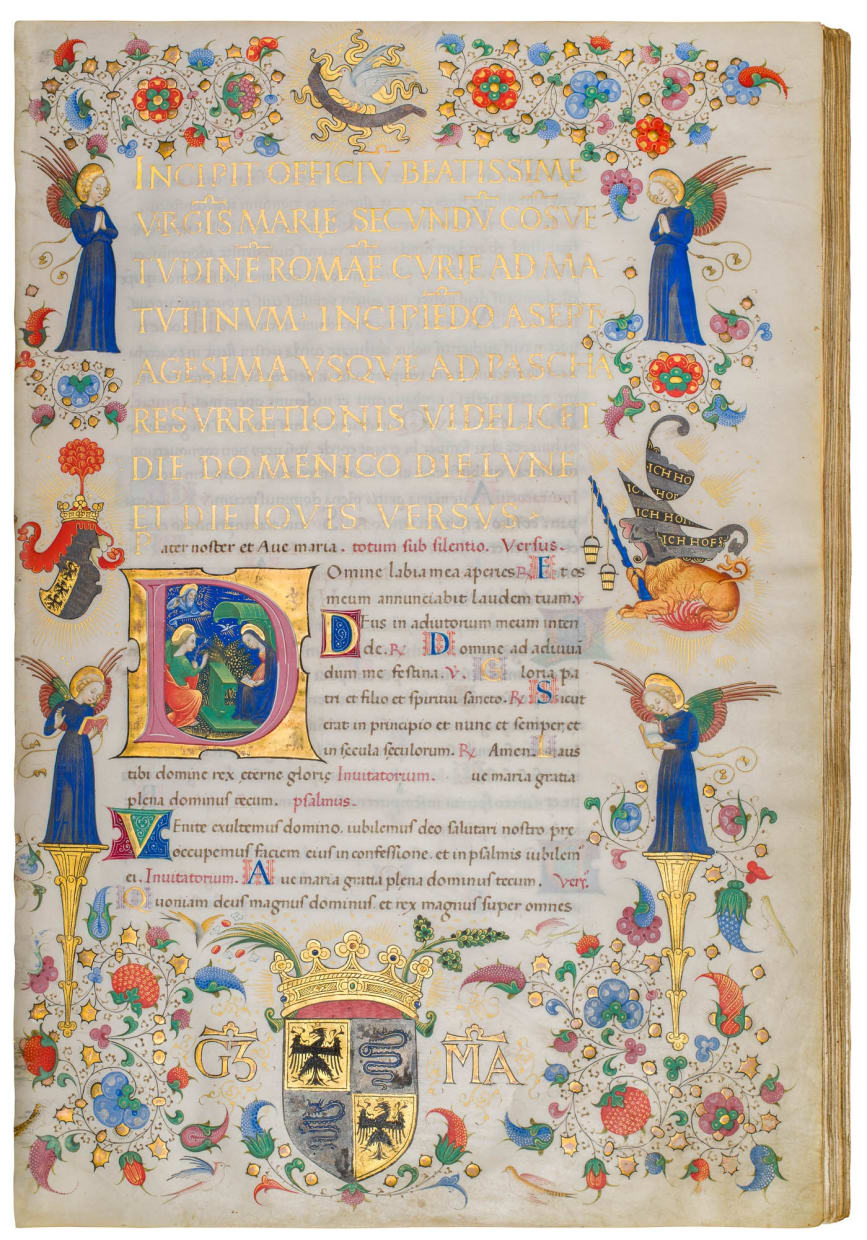 INCIPIT OFFICIV BEATISSIME
VIRGIS MARIE SECVNDV COSVE
TVDINE ROMAE CVRIE AD MA
TVTINVM· INCIPIEDO A SEPT
AGESIMA VSQVE AD PASCHA
RESVRRETIONIS VIDELICET
DIE DOMENICO DIE LVNE
ET DIE IOVIS VERSVS
ICH HO
ICH HOF
ICH HOF
ICH HOFF
Pater noster et Aue maria. totum sub silentio. Versus.
DOmine labia mea aperies ℞ Et os
meum annunciabit laudem tuam. ℣
DEus in adiutorum meum inten
de. ℞ Domine ad adiuuā
dum me festina. ℣. Gloria pa
tri et filio et spiritui sancto. ℞ Sicut
erat in principio et nunc et semper, et
in secula seculorum. ℞ Amen. Laus
tibi domine rex eterne glorię Inuitatorium. ue maria gratia
plena dominus tecum. psalmus.
VEnite exultemus domino. iubilemus deo salutari nostro pre
occupemus faciem eius in confessione. et in psalmis iubilem'
ei. Inuitatorium. Aue maria gratia plena dominus tecum. vers'.
Quoniam deus magnus dominus. et rex magnus super omnes
GƷ MA